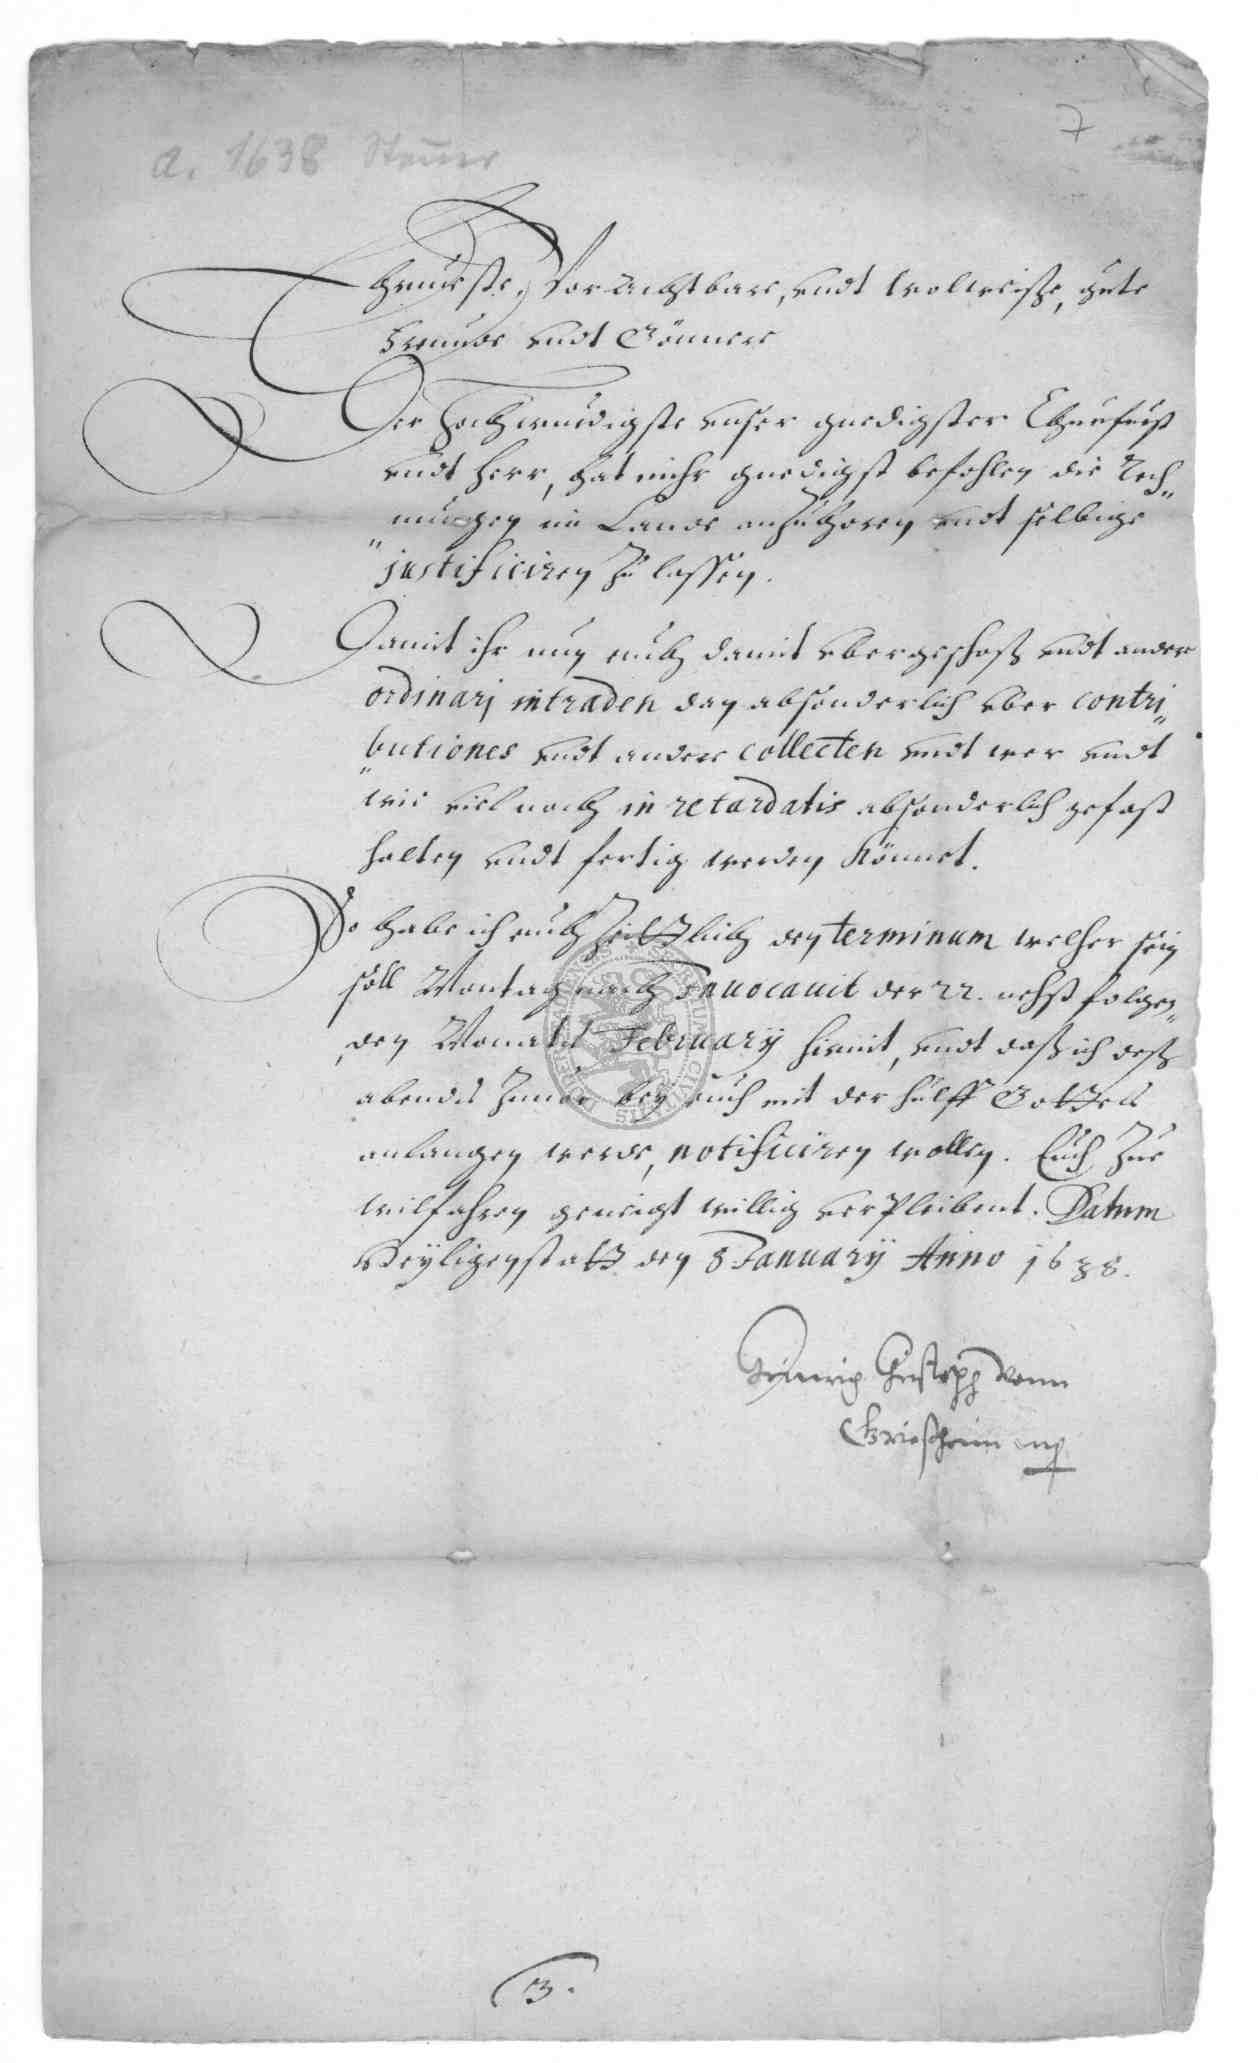 a. 1638 Steuer
7
Ehrnueste, VorAchtbare, vndt wolweise, gute
Freunde vndt Gönnere
Der Hochwurdigste vnser gnedigster Churfurst
vndt Herr, hat mihr gnedigst befohlen die Rech„
„nungen im Lande anzuhoren vndt selbige
justificiren zu lassen.
Damit ihr nun euch damit vber geschoß vndt andere
ordinarj intraden dan absonderlich vber contri„
„butiones vndt andere collecten vndt wer vndt
wie viel noch in retardatis absonderlich gefast
halten vndt fertig werden könnet.
So habe ich euch zeittlich den terminum welcher sein
soll Montag nach Inuocauit der 22. nehst folgen„
„den Monats February hiemit, vndt daß ich deß
abendts zuuor bey euch mit der hülff Gottes
anlangen werde, notificiren wollen. Euch zue
wilfahren geneigt willig verpleibent. Datum
Heyligenstatt den 8 January Anno 1638.
Heinrich Christoph vonn
Griesheim mp
3.